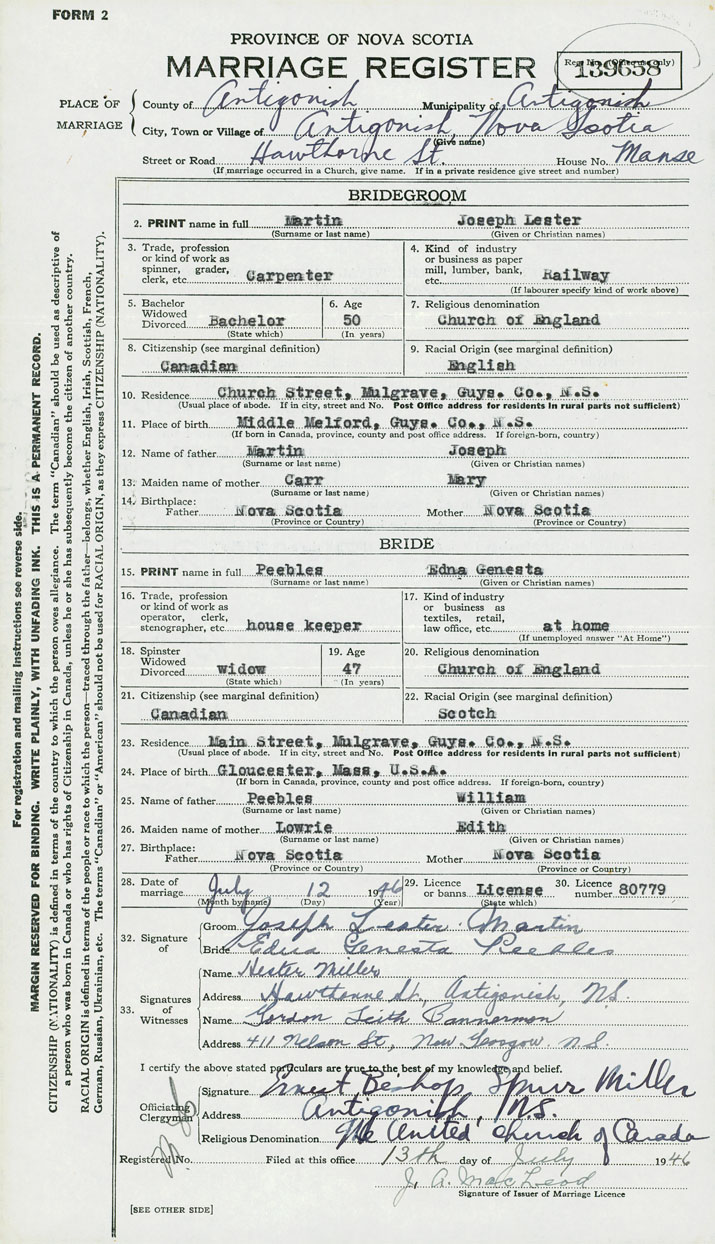 FORM 2
PROVINCE OF NOVA SCOTIA
MARRIAGE REGISTER
Reg. No. (Office use only)
139658
PLACE OF MARRIAGE
County of Antigonish Municipality of Antigonish
City, Town or Village of Antigonish, Nova Scotia
(Give name)
Street or Road Hawthorne St. House No. Manse
(If marriage occurred in a Church, give name. If in a private residence give street and number)
BRIDEGROOM
2. PRINT name in full Martin Joseph Lester
(Surname or last name) (Given or Christian names)
3. Trade, profession or kind of work as spinner, grader, clerk, etc. Carpenter
4. Kind of industry or business as paper mill, lumber, bank, etc. Railway
(If labourer specify kind of work above)
5. Bachelor Widowed Divorced Bachelor
(State which)
6. Age 50
(In years)
7. Religious denomination
Church of England
8. Citizenship (see marginal definition)
Canadian
9. Racial Origin (see marginal definition)
English
10. Residence Church Street, Mulgrave, Guys. Co., N.S.
(Usual place of abode. If in city, street and No. Post Office address for residents in rural parts not sufficient)
11. Place of birth Middle Melford, Guys. Co., N.S.
(If born in Canada, province, county and post office address. If foreign-born, country)
12. Name of father Martin Joseph
(Surname or last name) (Given or Christian names)
13. Maiden name of mother Carr Mary
(Surname or last name) (Given or Christian names)
14. Birthplace:
Father Nova Scotia Mother Nova Scotia
(Province or Country) (Province or Country)
BRIDE
15. PRINT name in full Peebles Edna Genesta
(Surname or last name) (Given or Christian names)
16. Trade, profession or kind of work as operator, clerk, stenographer, etc. house keeper
17. Kind of industry or business as textiles, retail, law office, etc. at home
(If unemployed answer "At Home")
18. Spinster Widowed Divorced widow
(State which)
19. Age 47
(In years)
20. Religious denomination
Church of England
21. Citizenship (see marginal definition)
Canadian
22. Racial Origin (see marginal definition)
Scotch
23. Residence Main Street, Mulgrave, Guys. Co., N.S.
(Usual place of abode. If in city, street and No. Post Office address for residents in rural parts not sufficient)
24. Place of birth Gloucester, Mass, U.S.A.
(If born in Canada, province, county and post office address. If foreign-born, country)
25. Name of father Peebles William
(Surname or last name) (Given or Christian names)
26. Maiden name of mother Lowrie Edith
(Surname or last name) (Given or Christian names)
27. Birthplace:
Father Nova Scotia Mother Nova Scotia
(Province or Country) (Province or Country)
28. Date of marriage July 12 1946
(Month by name) (Day) (Year)
29. Licence or banns License
(State which)
30. Licence number 80779
32. Signature of
Groom Joseph Lester Martin
Bride Edna Genesta Peebles
33. Signatures of Witnesses
Name Hester Miller
Address Hawthorne St, Antigonish, N.S.
Name Gordon Leith Bannerman
Address 411 Nelson St, New Glasgow N.S.
I certify the above stated particulars are true to the best of my knowledge and belief.
Officiating Clergyman
Signature Ernest Bishop Spurr Miller
Address Antigonish, N.S.
Religious Denomination The United Church of Canada
Registered No. Filed at this office 13th day of July 1946
J. A. MacLeod
Signature of Issuer of Marriage Licence
[SEE OTHER SIDE]
For registration and mailing instructions see reverse side.
MARGIN RESERVED FOR BINDING. WRITE PLAINLY, WITH UNFADING INK. THIS IS A PERMANENT RECORD.
CITIZENSHIP (NATIONALITY) is defined in terms of the country to which the person owes allegiance. The term "Canadian" should be used as descriptive of
a person who was born in Canada or who has rights of Citizenship in Canada, unless he or she has subsequently become the citizen of another country.
RACIAL ORIGIN is defined in terms of the people or race to which the person—traced through the father—belongs, whether English, Irish, Scottish, French,
German, Russian, Ukrainian, etc. The terms "Canadian" or "American" should not be used for RACIAL ORIGIN, as they express CITIZENSHIP (NATIONALITY).